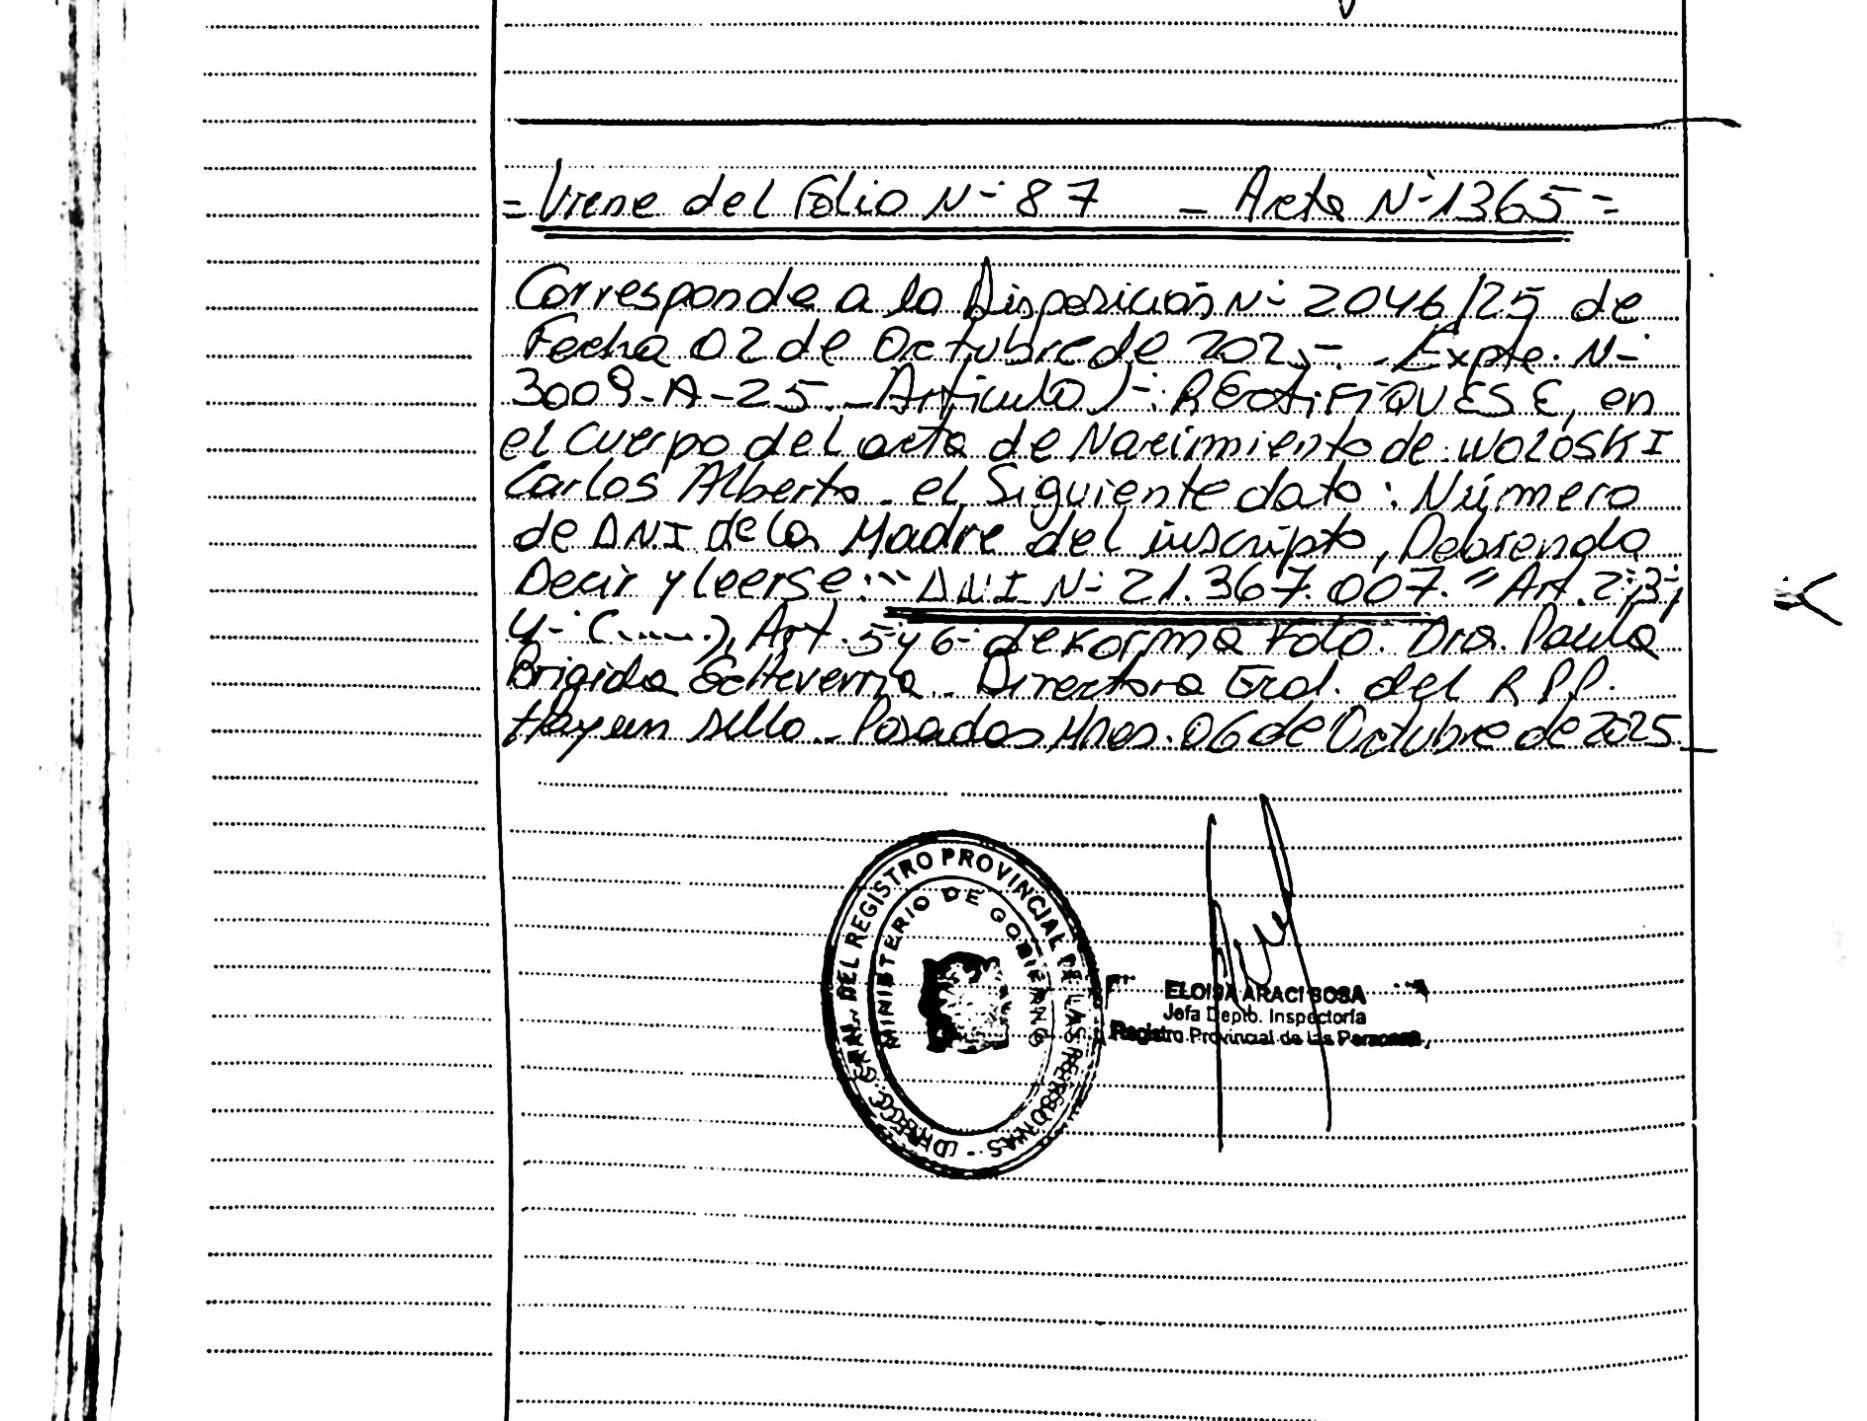 = Viene del Folio Nº 87 - Acta Nº 1365 =
Corresponde a la Disposición Nº 2046/25 de
Fecha 02 de Octubre de 2025.- Expte. Nº
3009-A-25.- Artículo 1º: RECTIFIQUESE, en
el cuerpo del acta de Nacimiento de: WOLOSKI
Carlos Alberto. el Siguiente dato: Número
de DNI de la Madre del inscripto, Debiendo
Decir y leerse: "DNI Nº 21.367.007." Art. 2º, 3º,
4º (......), Art. 5º y 6º de Forma Fdo. Dra. Paula
Brigida Echeverria. Directora Gral. del RPP.
Hay un sello. Posadas Mnes. 06 de Octubre de 2025.
DIRECC. GRAL. DEL REGISTRO PROVINCIAL DE LAS PERSONAS -
MINISTERIO DE GOBIERNO
ELOISA ARACI SOSA
Jefa Depto. Inspectoría
Registro Provincial de las Personas